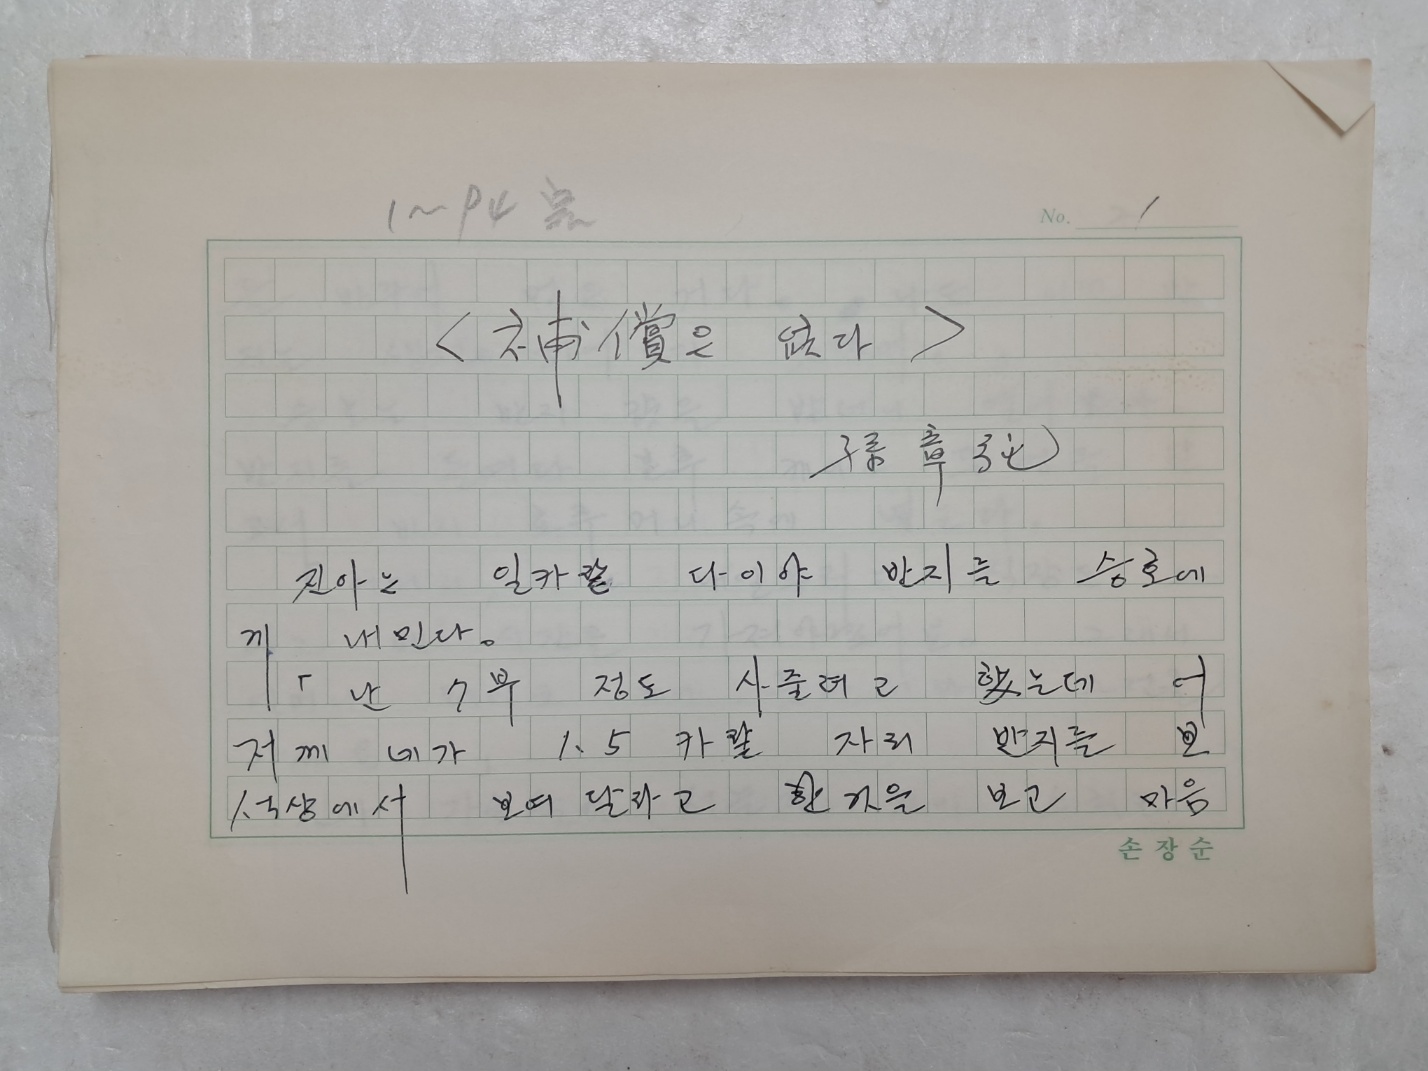 1~94
No. 1
<補償은 없다>
孫章純
진아는 일카랕 다이아 반지를 승호에
게 내민다。
「난 7부 정도 사줄려고 했는데 어
저께 네가 1.5 카랕 자리 반지를 보
석상에서 보여 달라고 한 것을 보고 마음
손장순